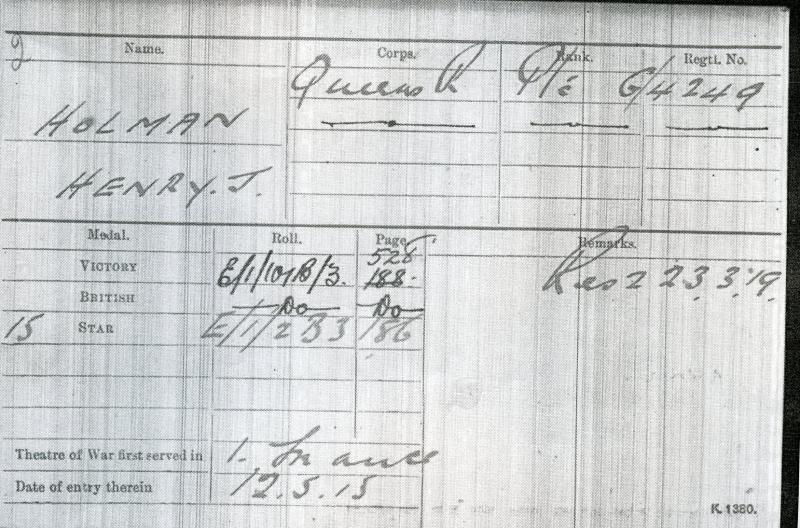 Name. Corps. Rank. Regtl. No.
Queens R Pte G/4249
HOLMAN
HENRY. J.
Medal. Roll. Page Remarks.
528
VICTORY E/1/101B/3. 188. Res Z 23.3.19.
BRITISH Do Do
15 STAR E/1/2B3 186
Theatre of War first served in 1. France
Date of entry therein 12.5.15
K. 1380.